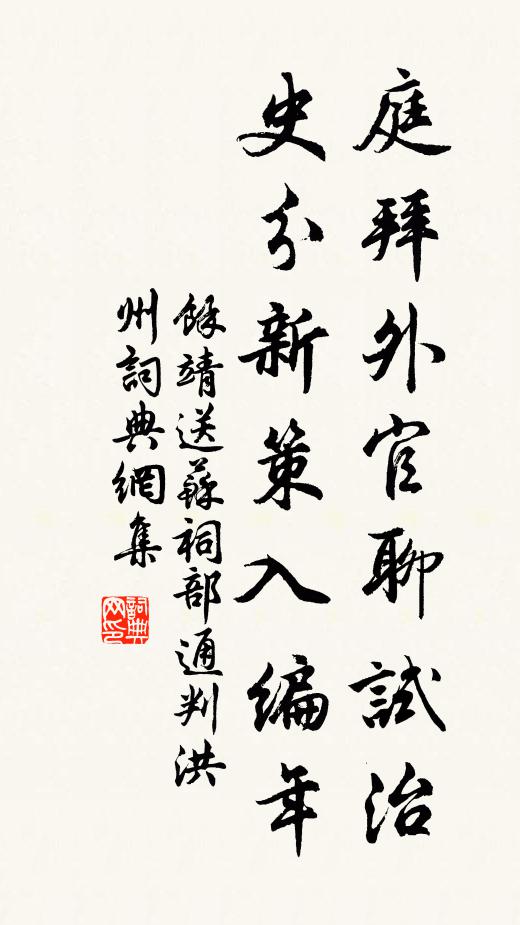 庭拜外官聊試治
史分新策入編年
餘靖送蘇祠部通判洪
州詞典網集
詞典网印